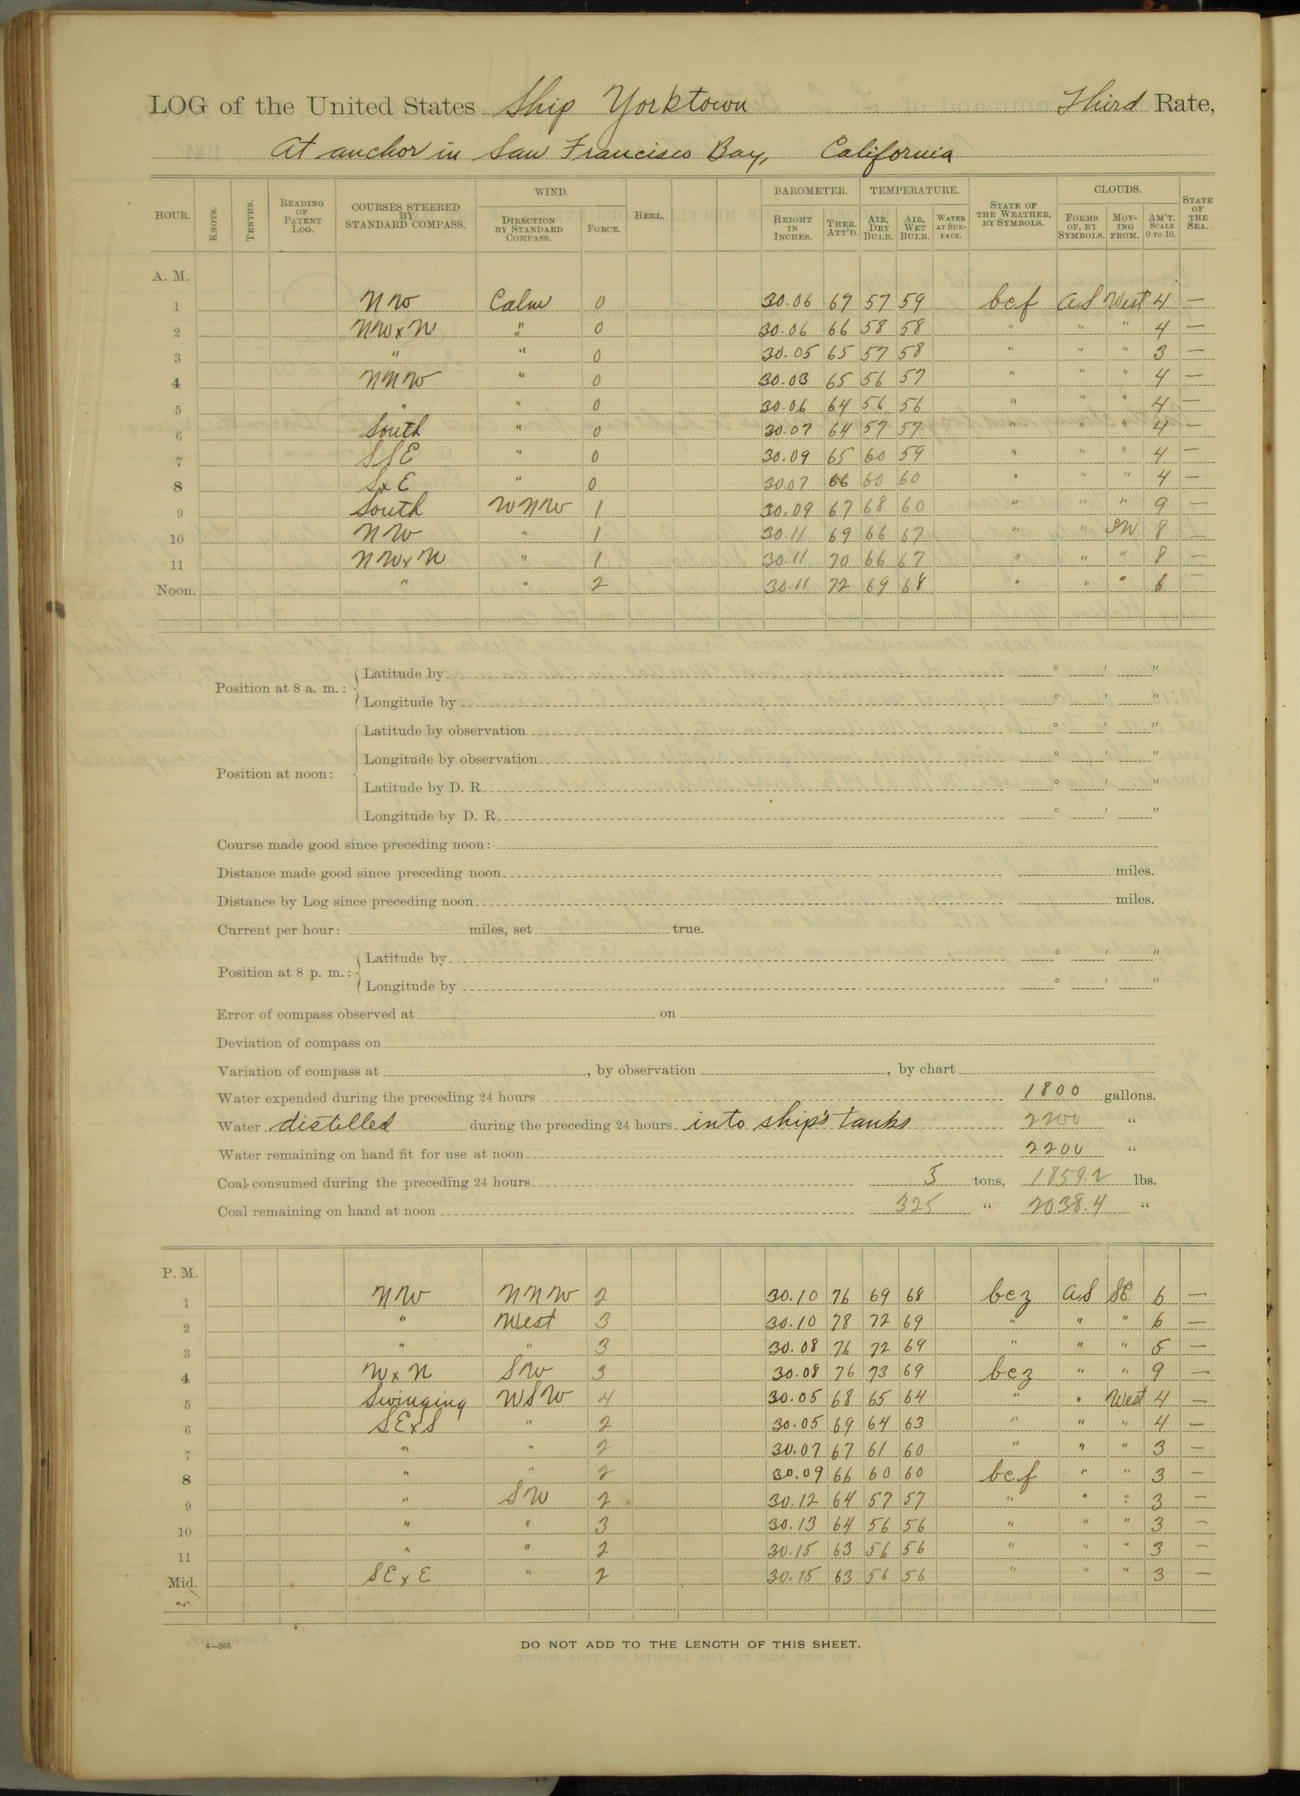 LOG of the United States Ship Yorktown Third Rate,
At anchor in San Francisco Bay, California
HOUR. KNOTS. TENTHS. READING OF PATENT LOG. COURSES STEERED BY STANDARD COMPASS. WIND. DIRECTION BY STANDARD COMPASS. FORCE. HEEL. BAROMETER. HEIGHT IN INCHES. THER. ATT'D. TEMPERATURE. AIR, DRY BULB. AIR, WET BULB. WATER AT SURFACE. STATE OF THE WEATHER, BY SYMBOLS. CLOUDS. FORMS OF, BY SYMBOLS. MOVING FROM. AM'T. SCALE 0 TO 10. STATE OF THE SEA.
A. M.
1 NW Calm 0 30.06 67 57 59 bcf AS West 4 —
2 NWxN " 0 30.06 66 58 58 " " " 4 —
3 " " 0 30.05 65 57 58 " " " 3 —
4 NNW " 0 30.03 65 56 57 " " " 4 —
5 " " 0 30.06 64 56 56 " " " 4 —
6 South " 0 30.07 64 57 57 " " " 4 —
7 SSE " 0 30.09 65 60 59 " " " 4 —
8 SxE " 0 30.07 66 60 60 " " " 4 —
9 South WNW 1 30.09 67 68 60 " " " 9 —
10 NW " 1 30.11 69 66 67 " " SW 8 —
11 NWxN " 1 30.11 70 66 67 " " " 8 —
Noon. " " 2 30.11 72 69 68 " " " 6 —
Position at 8 a. m.: Latitude by ° ' "
Longitude by ° ' "
Position at noon: Latitude by observation ° ' "
Longitude by observation ° ' "
Latitude by D. R. ° ' "
Longitude by D. R. ° ' "
Course made good since preceding noon:
Distance made good since preceding noon miles.
Distance by Log since preceding noon miles.
Current per hour: miles, set true.
Position at 8 p. m.: Latitude by ° ' "
Longitude by ° ' "
Error of compass observed at on
Deviation of compass on
Variation of compass at , by observation , by chart
Water expended during the preceding 24 hours 1800 gallons.
Water distilled during the preceding 24 hours into ship's tanks 2200 "
Water remaining on hand fit for use at noon 2200 "
Coal consumed during the preceding 24 hours 5 tons, 1859.2 lbs.
Coal remaining on hand at noon 325 " 2038.4 "
P. M.
1 NW NNW 2 30.10 76 69 68 bcz AS SE 6 —
2 " West 3 30.10 78 72 69 " " " 6 —
3 " " 3 30.08 76 72 69 " " " 5 —
4 WxN SW 3 30.08 76 73 69 bcz " " 9 —
5 Swinging WSW 4 30.05 68 65 64 " " West 4 —
6 SExS " 2 30.05 69 64 63 " " " 4 —
7 " " 2 30.07 67 61 60 " " " 3 —
8 " " 2 30.09 66 60 60 bcf " " 3 —
9 " SW 2 30.12 64 57 57 " " " 3 —
10 " " 3 30.13 64 56 56 " " " 3 —
11 " " 2 30.15 63 56 56 " " " 3 —
Mid. SExE " 2 30.15 63 56 56 " " " 3 —
4—265
DO NOT ADD TO THE LENGTH OF THIS SHEET.